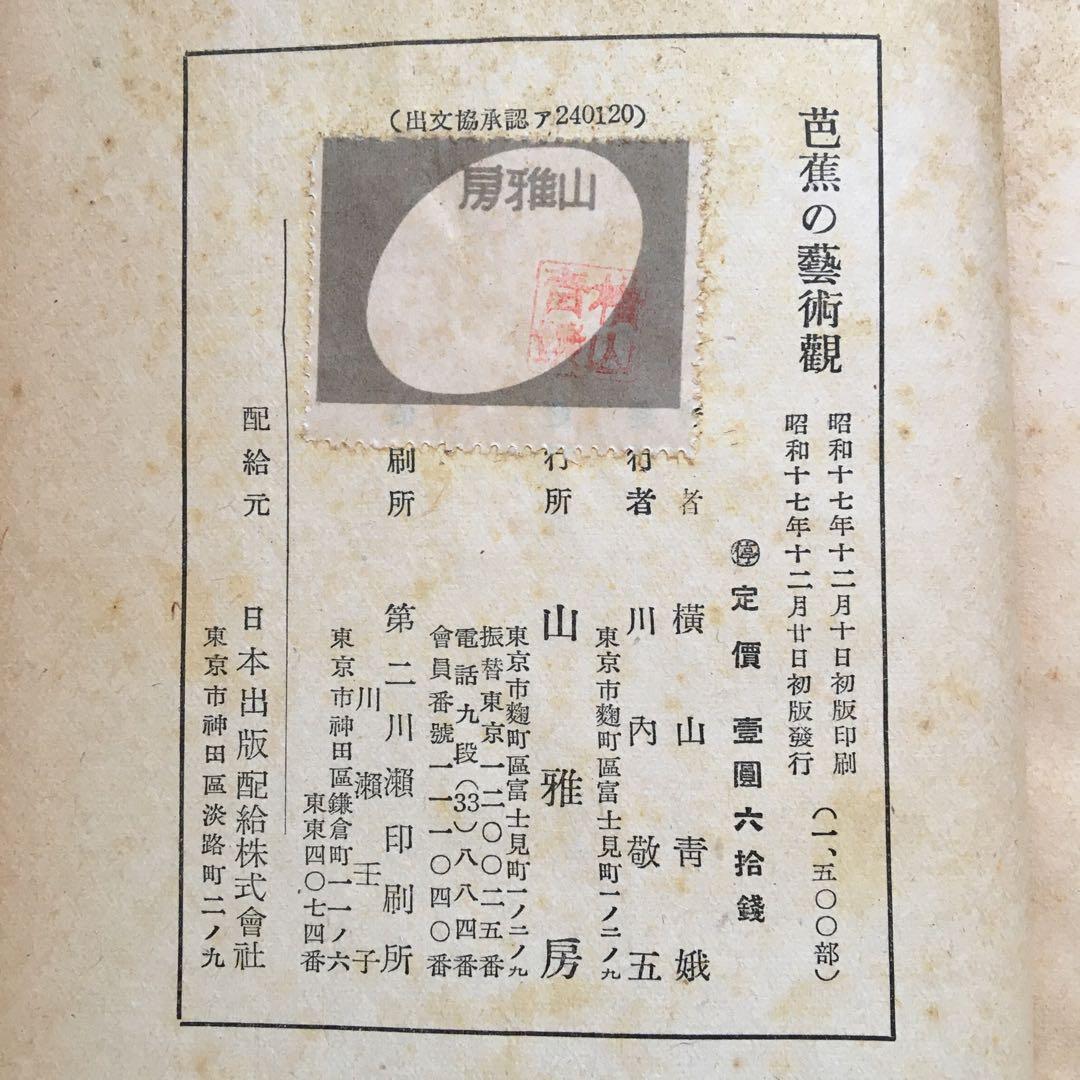 芭蕉の藝術觀
昭和十七年十二月十日初版印刷
昭和十七年十二月廿日初版發行
(一、五〇〇部)
停 定價 壹圓六拾錢
(出文協承認ア240120)
山雅房
者 橫山靑娥
行者 川内敬五
東京市麴町區富士見町一ノ二ノ九
行所 山雅房
東京市麴町區富士見町一ノ二ノ九
振替東京一二〇〇二五番
電話九段(33)八八四番
會員番號一一一〇四〇番
刷所 第二川瀨印刷所
川瀨王子
東京市神田區鎌倉町一一ノ六
東東四〇七四番
配給元 日本出版配給株式會社
東京市神田區淡路町二ノ九